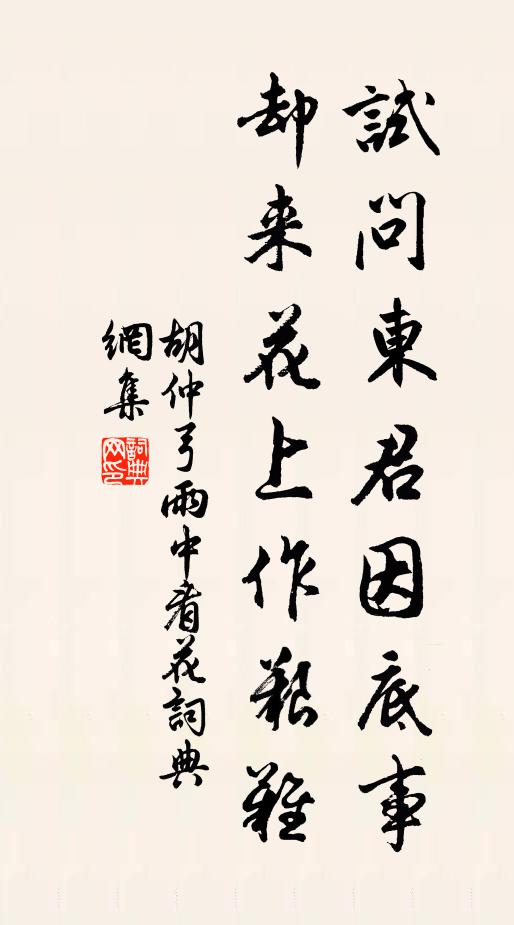 試問東君因底事
却来花上作艱難
胡仲弓雨中看花詞典
網集
詞典網印